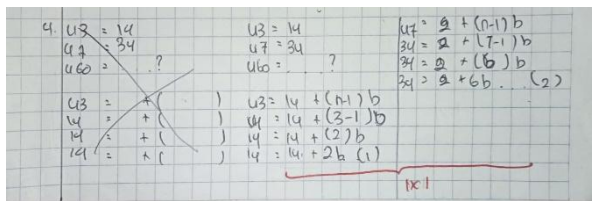 4. U3 = 14
U7 = 34
U60 = . . . ?
U3 = + ( )
14 = + ( )
14 = + ( )
14 = + ( )
U3 = 14
U7 = 34
U60 = . . . ?
U3 = 14 + (n-1) b
14 = 14 + (3-1) b
14 = 14 + (2) b
14 = 14 + 2b (1)
U7 = a + (n-1) b
34 = a + (7-1) b
34 = a + (6) b
34 = a + 6b . . . (2)
1x1